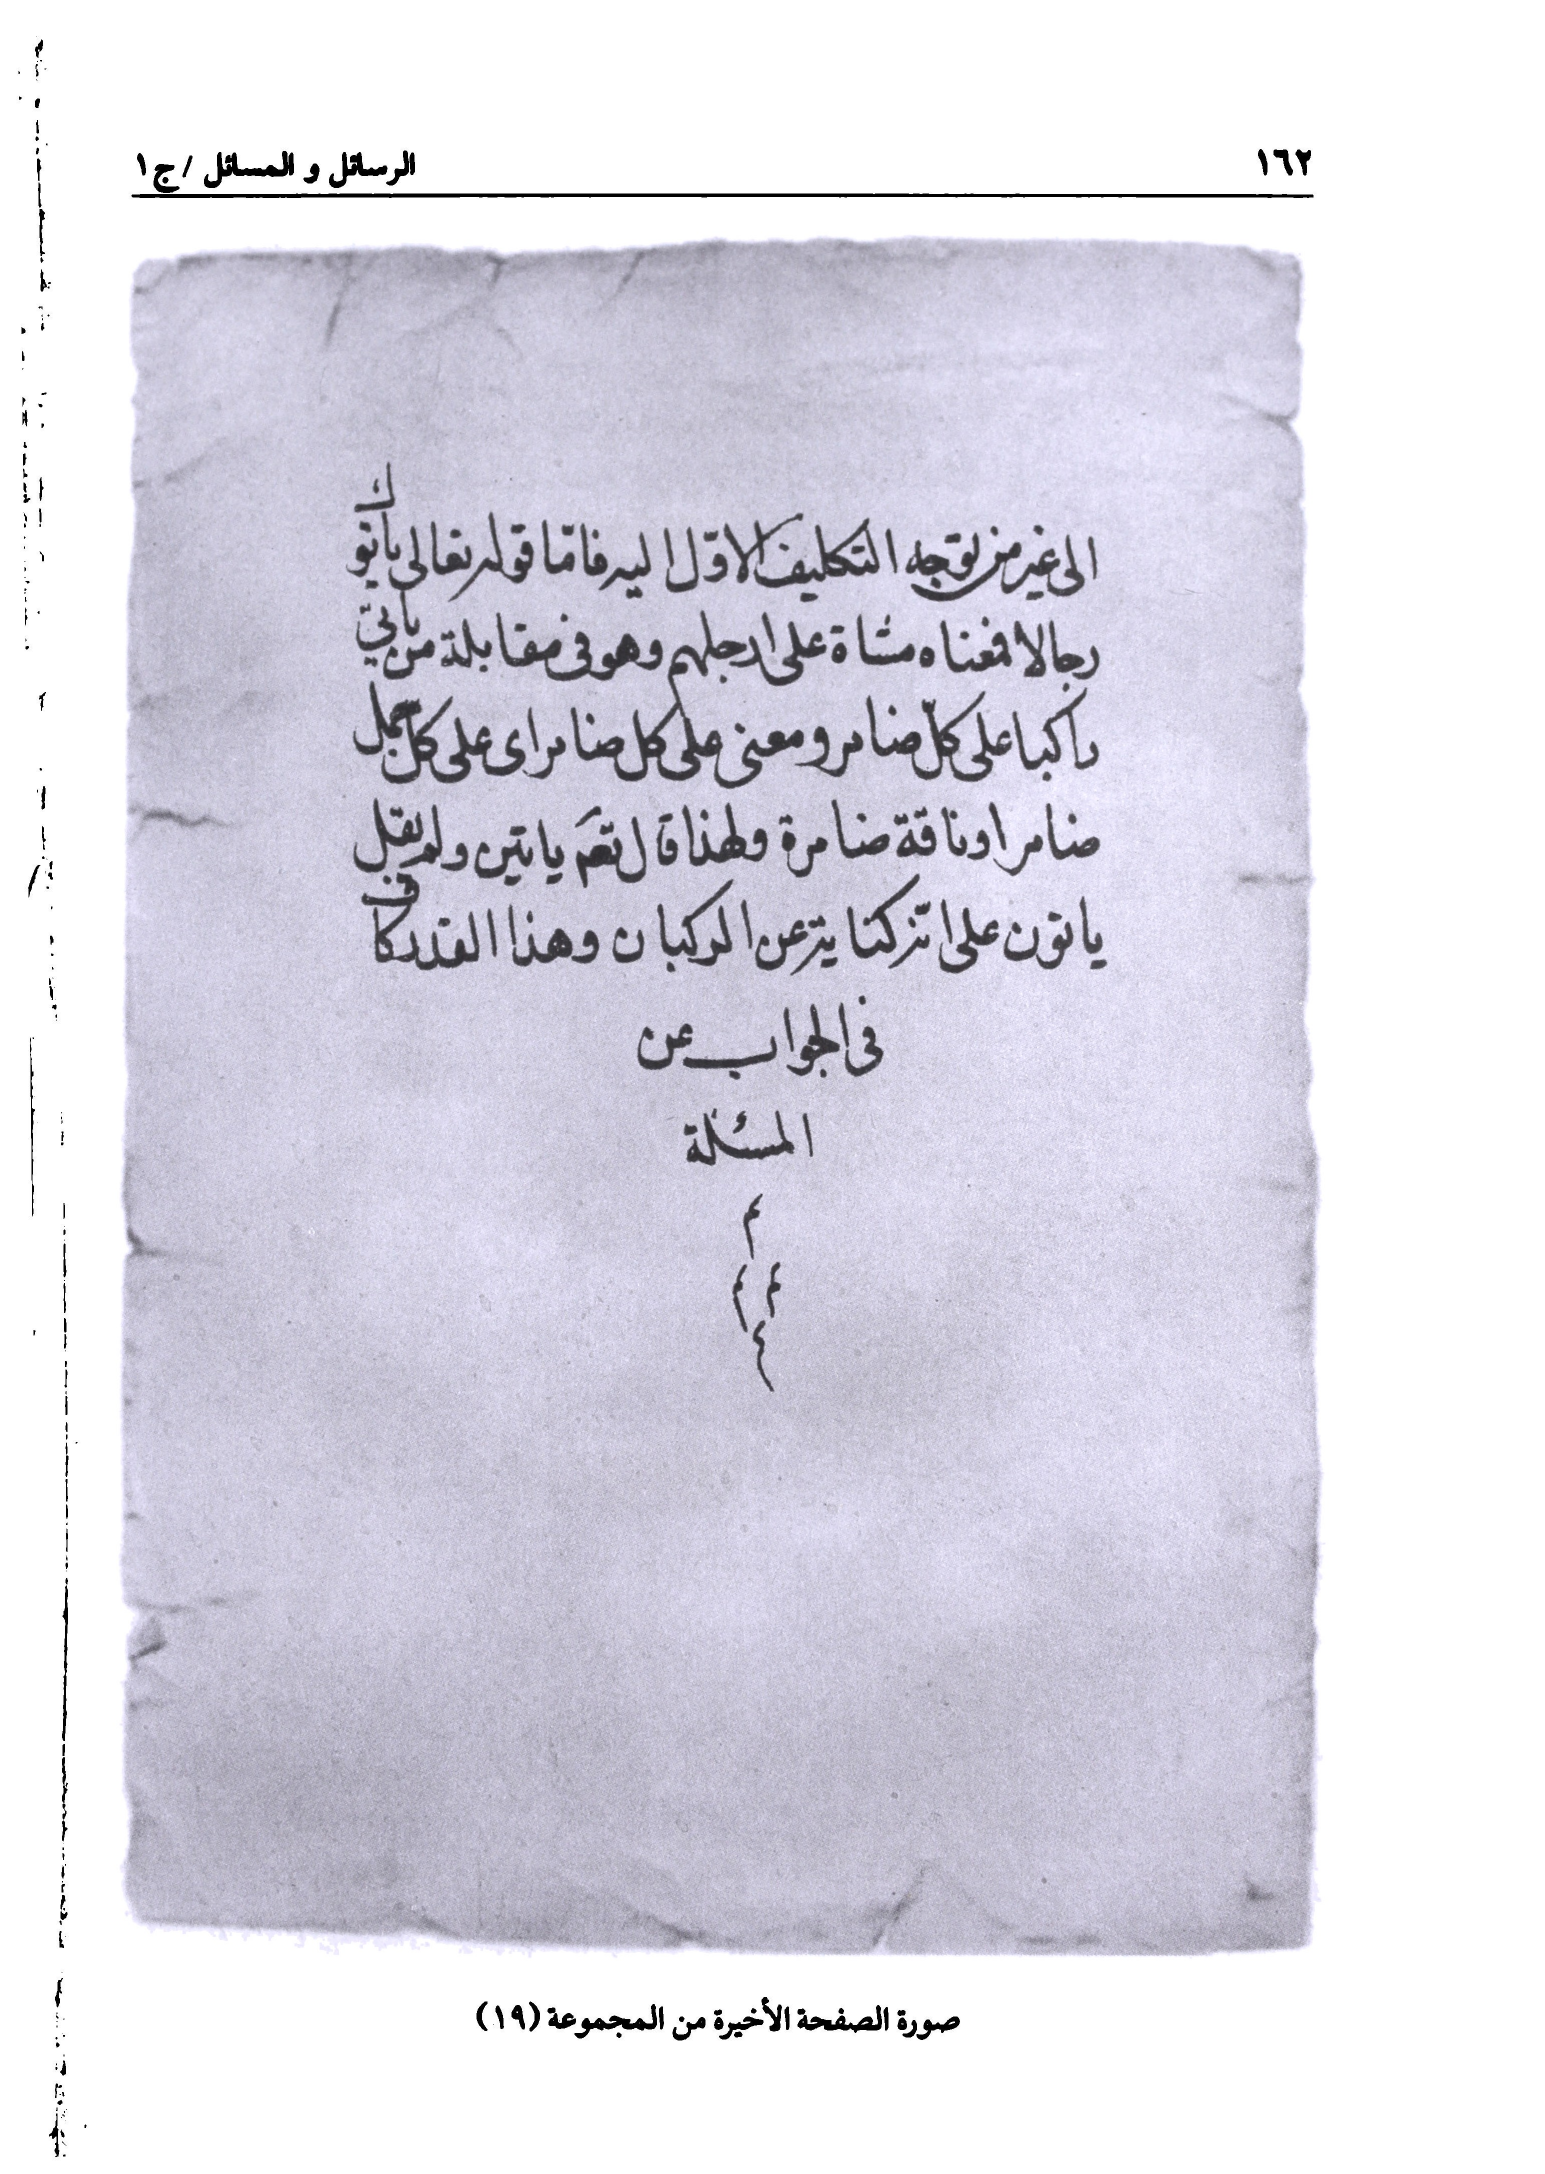 ١٦٢
الرسائل و المسائل / ج ١
الى غير من توجه التكليف الاوّل اليه فامّا قوله تعالى ياتوك
رجالا فمعناه مشاة على ارجلهم وهو فى مقابلة من ياتي
راكبا على كلّ ضامر ومعنى على كل ضامر اى على كلّ جمل
ضامر او ناقة ضامرة ولهذا قال تعم ياتين ولم يقل
ياتون على انّ كناية عن الركبان وهذا القدر كاف
فى الجواب عن
المسئلة
م
م م
م
صورة الصفحة الأخيرة من المجموعة (١٩)